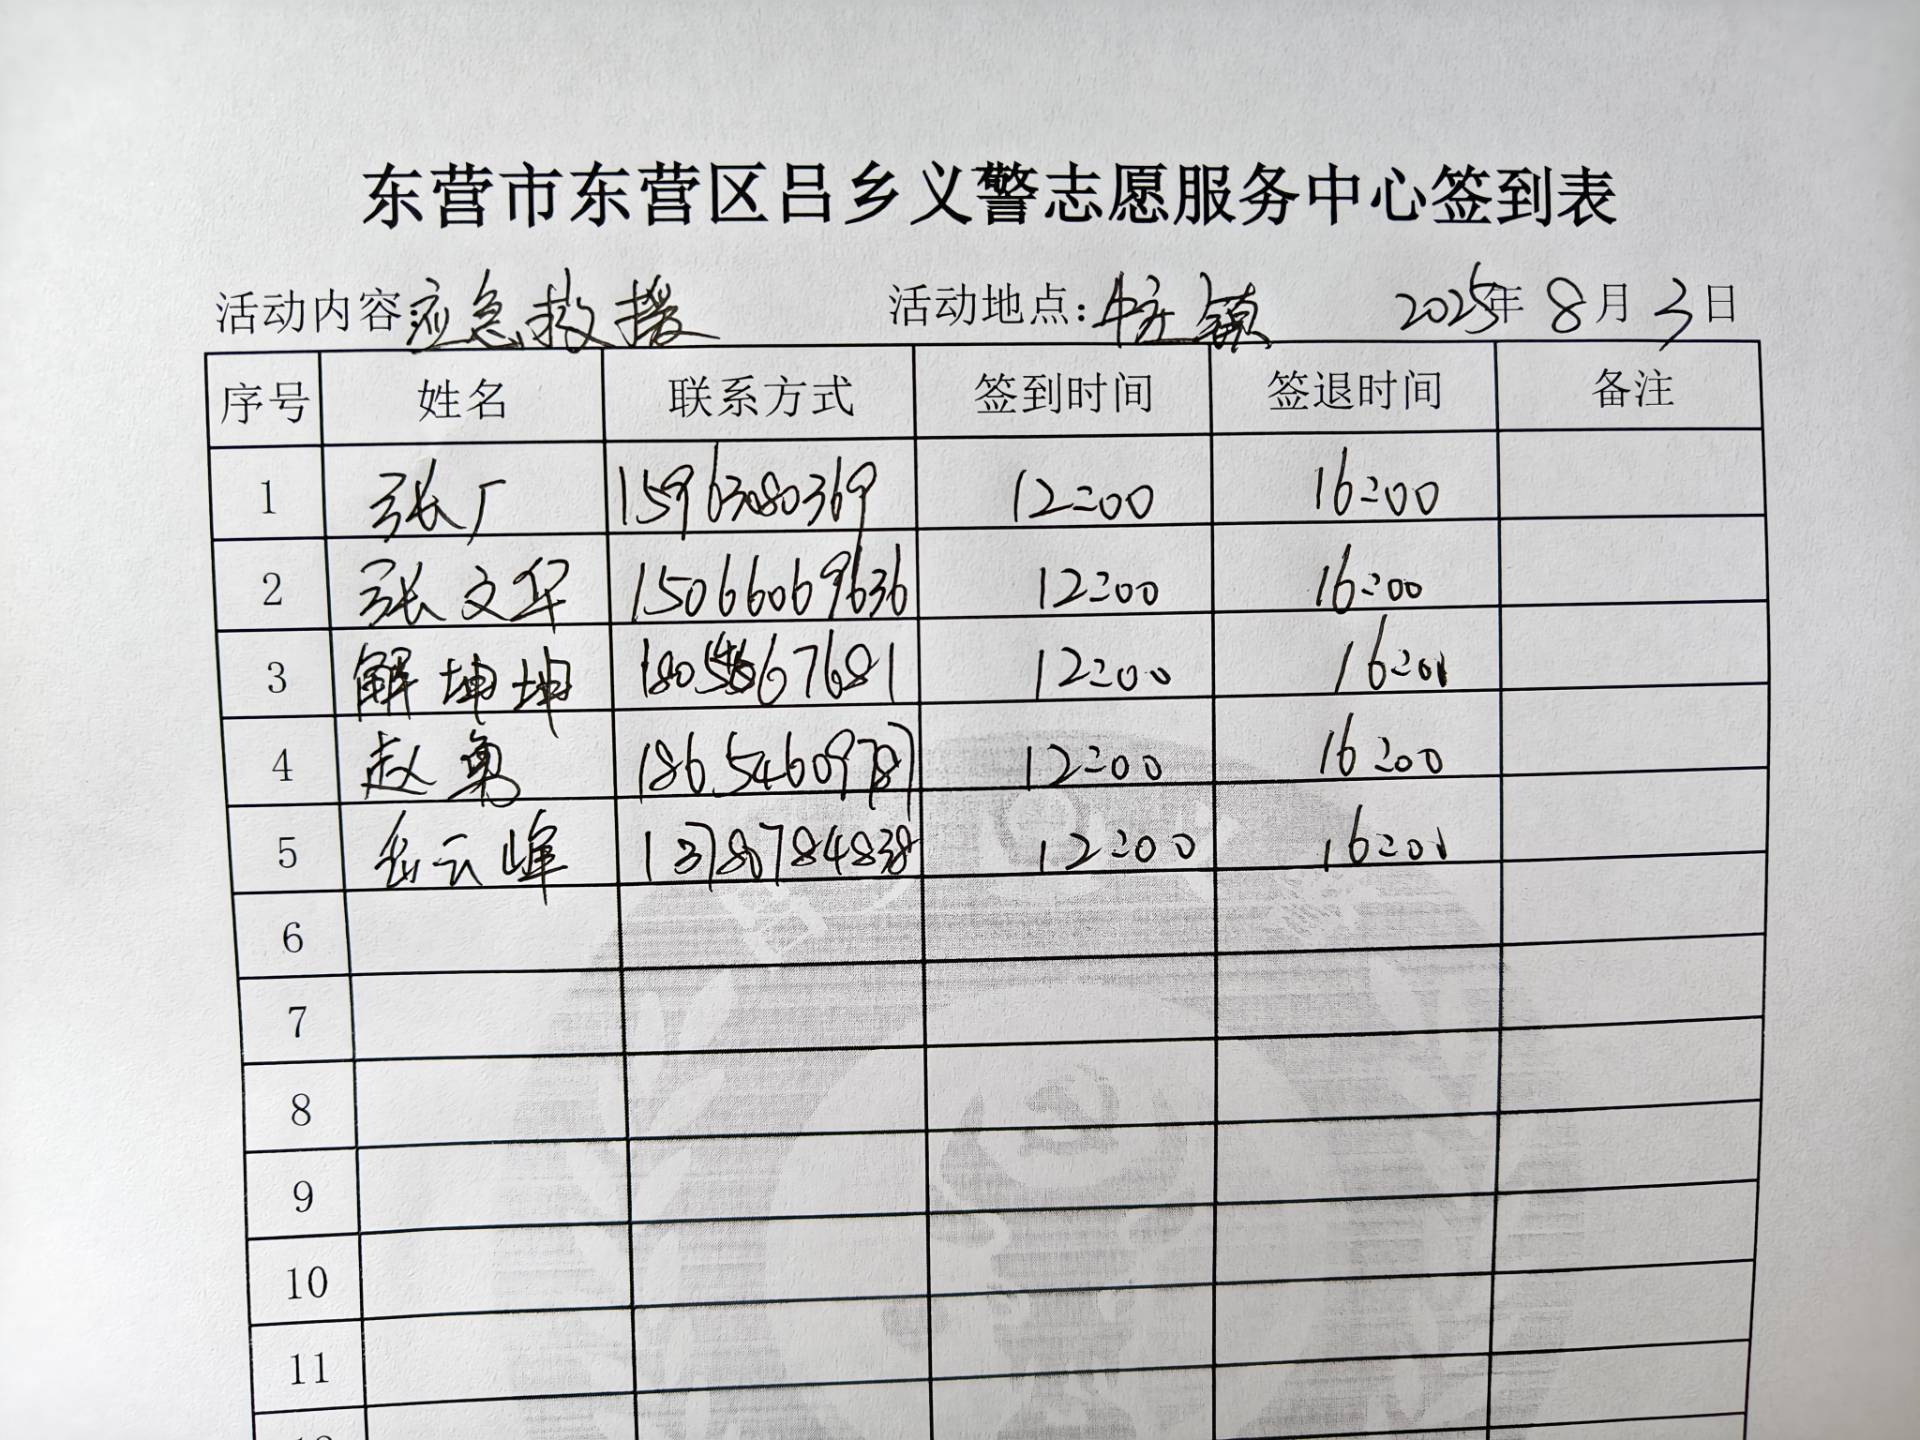 东营市东营区吕乡义警志愿服务中心签到表
活动内容 应急救援 活动地点: 牛庄镇 2025年 8月 3日
序号 姓名 联系方式 签到时间 签退时间 备注
1 张广 15963080369 12:00 16:00
2 张文华 15066069636 12:00 16:00
3 解坤坤 12:00 16:00
4 赵勇 18654609787 12:00 16:00
5 岳云峰 13780784838 12:00 16:00
6
7
8
9
10
11